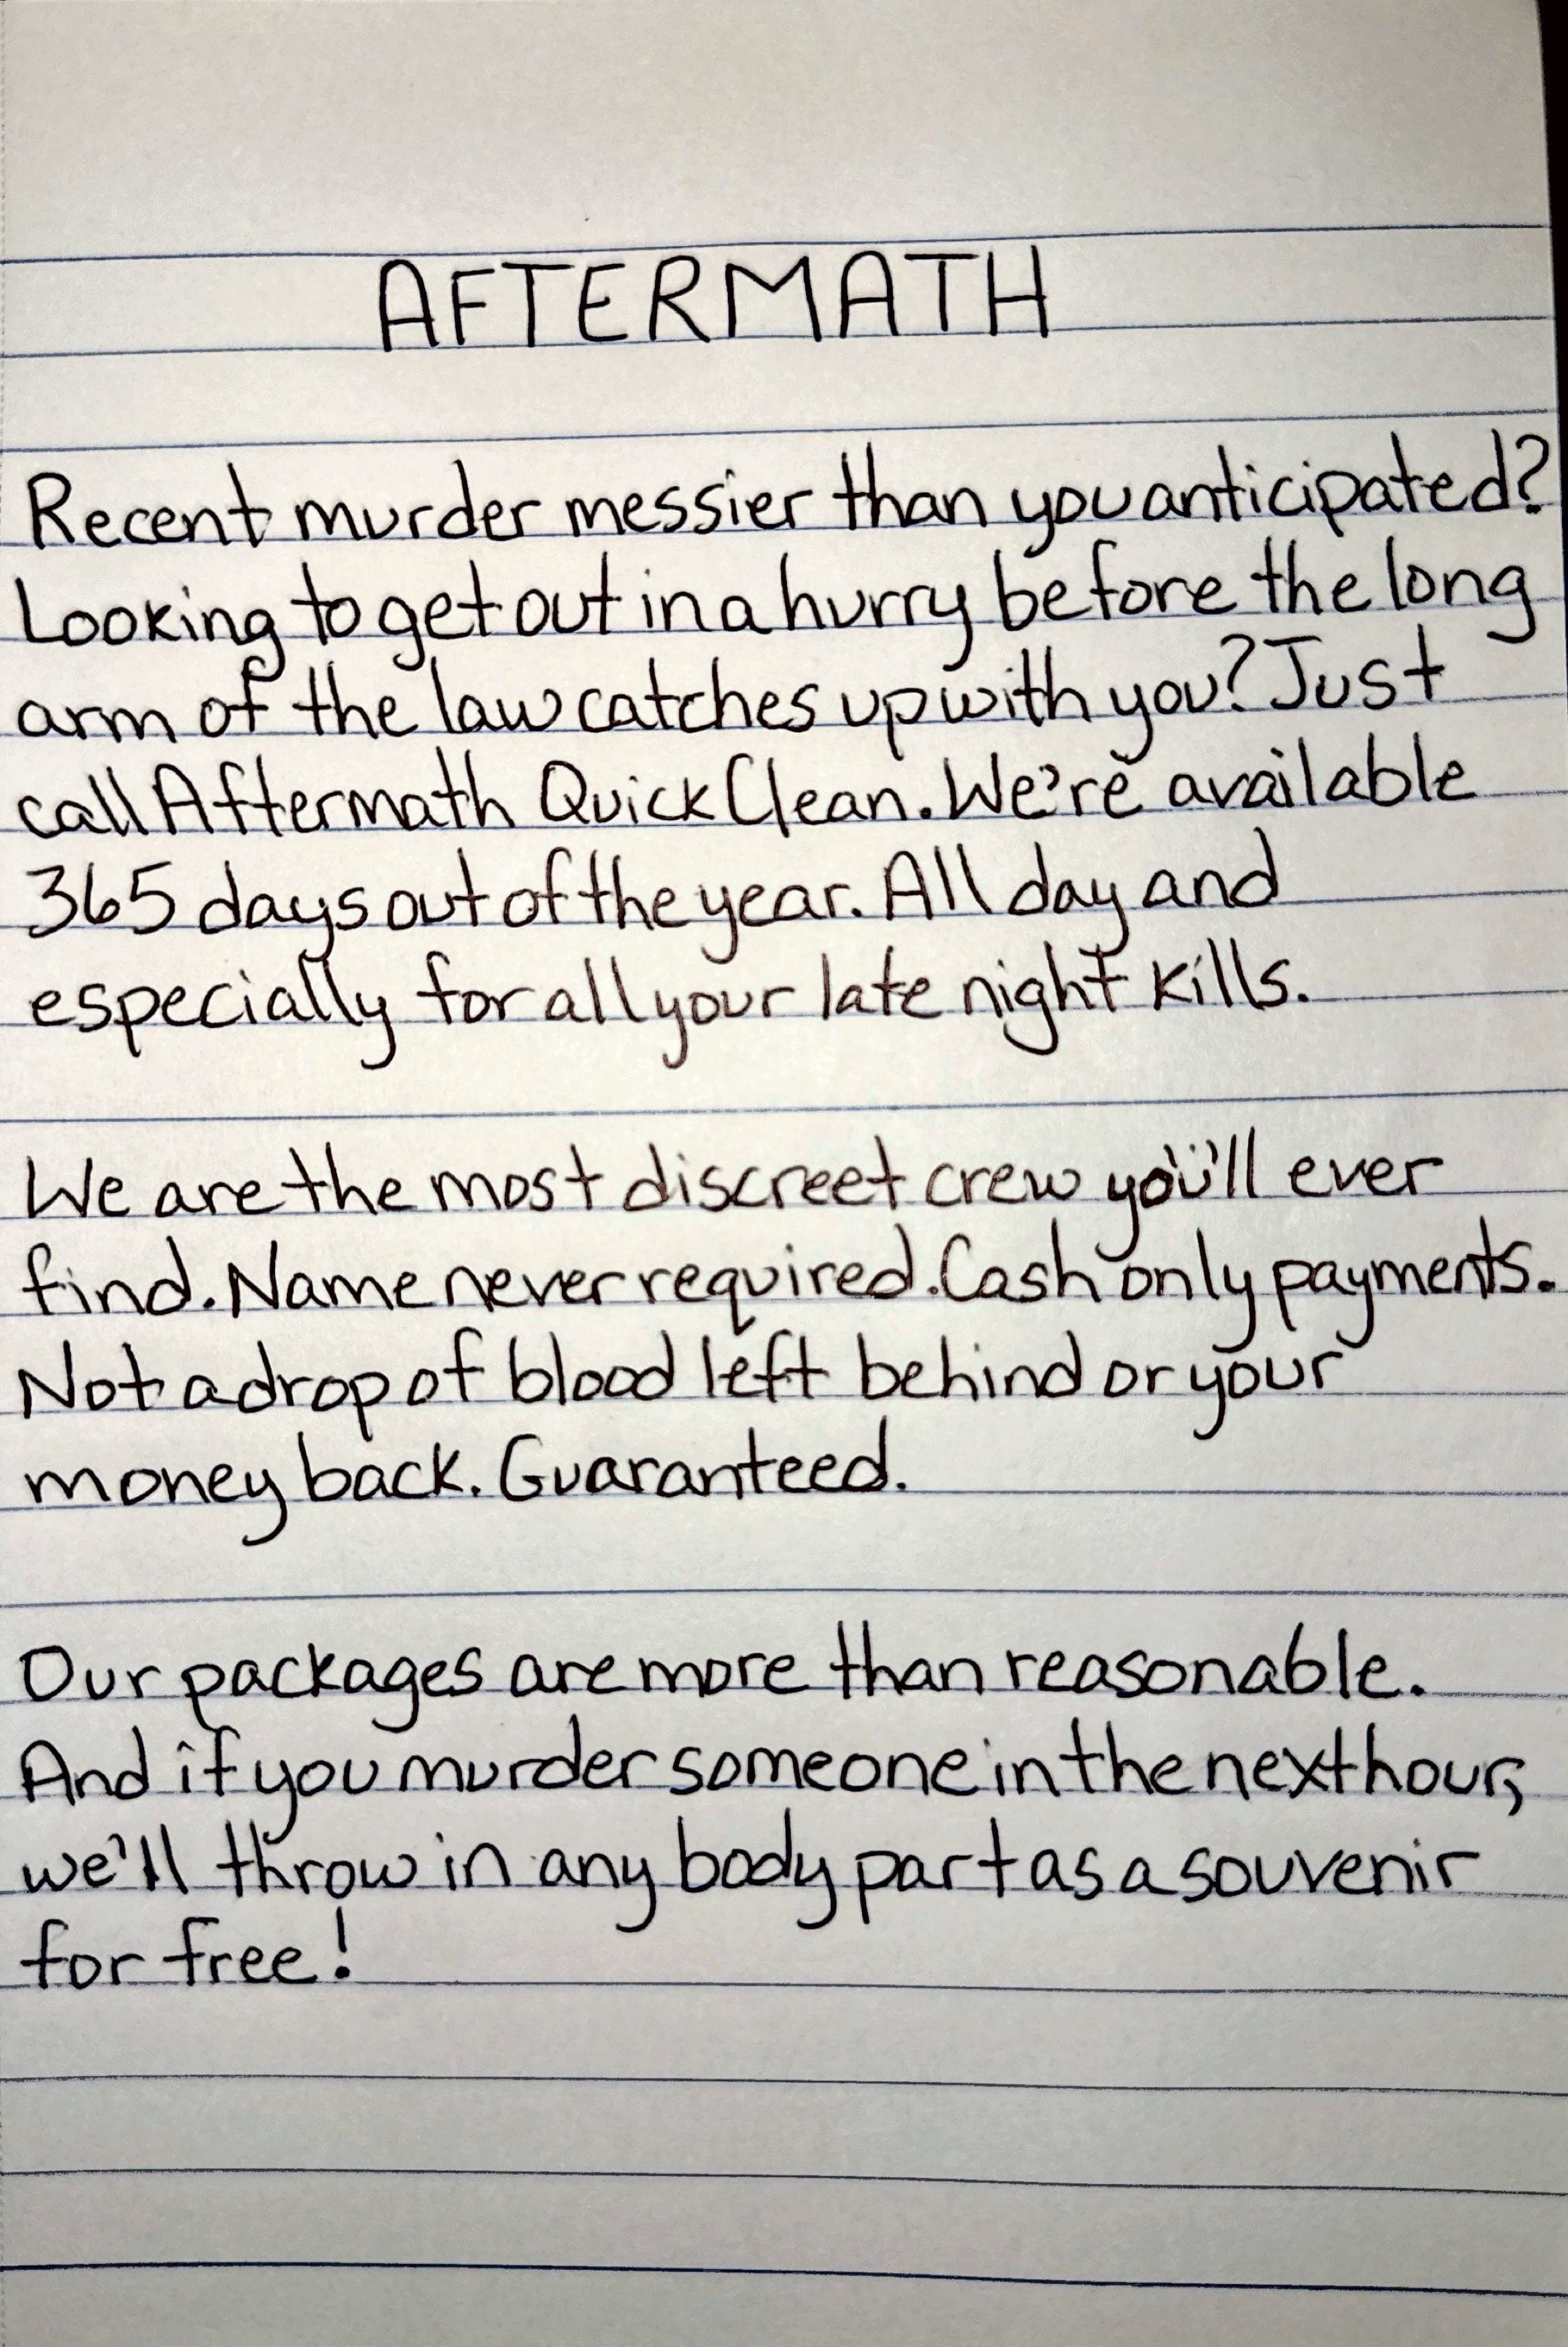 AFTERMATH
Recent murder messier than you anticipated?
Looking to get out in a hurry before the long
arm of the law catches up with you? Just
call Aftermath Quick Clean. We're available
365 days out of the year. All day and
especially for all your late night kills.
We are the most discreet crew you'll ever
find. Name never required. Cash only payments.
Not a drop of blood left behind or your
money back. Guaranteed.
Our packages are more than reasonable.
And if you murder someone in the next hour,
we'll throw in any body part as a souvenir
for free!